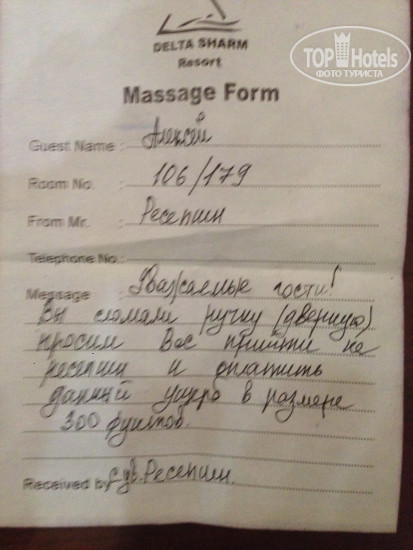 DELTA SHARM
Resort
TOP Hotels
ФОТО ТУРИСТА
Massage Form
Guest Name : Алексей
Room No. : 106/179
From Mr. : Ресепшн
Telephone No.:
Message : Уважаемые гости!
Вы сломали ручку (дверную).
просим Вас прийти на
ресепшн и оплатить
данный ущерб в размере
300 фунтов.
Received by: с ув. Ресепшн.